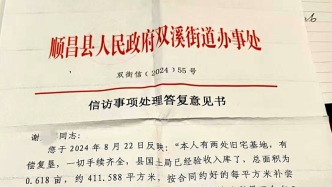 顺昌县人民政府双溪街道办事处
双街信（2024）55号
信访事项处理答复意见书
谢 同志：
您于2024年8月22日反映："本人有两处旧宅基地，有
偿复垦，一切手续齐全，县国土局已经验收入库了，总面积为
0.618亩，约411.588平方米，按合同约好的每平方米补偿